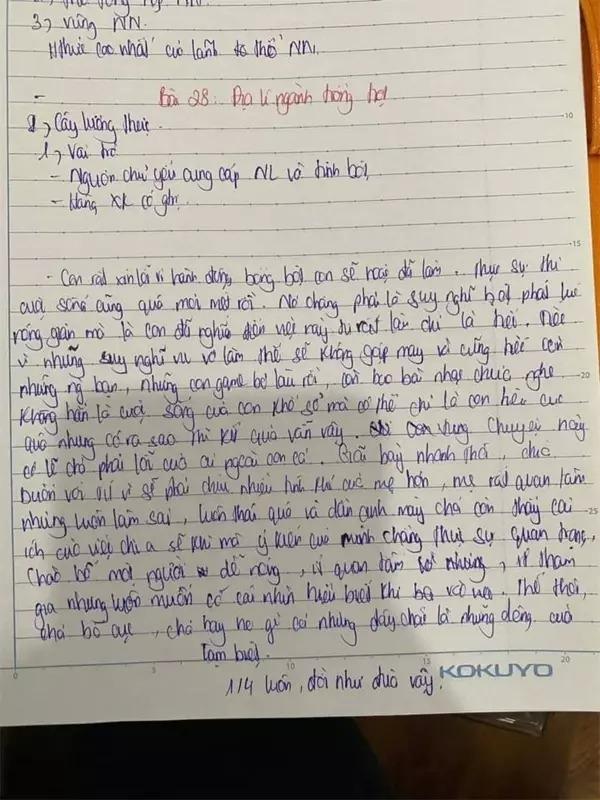 3, vùng NN.
Hthức cao nhất của lãnh thổ NN.
Bài 28: Địa lí ngành trồng trọt
I, Cây lương thực
1, Vai trò
- Nguồn chủ yếu cung cấp NL và tinh bột,
- Hàng XK có gtrị
- Con rất xin lỗi vì hành động bồng bột con sẽ hoặc đã làm. Thực sự thì
cuộc sống cũng quá mỏi mệt rồi. Nó chẳng phải là suy nghĩ bột phát lúc
nóng giận mà là con đã nghĩ đến việc này từ rất lâu chỉ là hơi tiếc
vì những suy nghĩ vu vơ làm thế sẽ không gặp may vì cũng hết
những ng bạn, những con game bỏ lâu rồi, còn bao bài nhạc chưa nghe
Không hẳn là cuộc sống của con khổ sở mà có thể chỉ là con tiêu cực
quá nhưng có ra sao thì kết quả vẫn vậy. Chuyện này
có lẽ chả phải lỗi của ai ngoài con cả. Giãi bày nhanh thôi, chắc
buồn với vì sẽ phải chịu nhiều tính khí của mẹ hơn, mẹ rất quan tâm
nhưng luôn làm sai, luôn thái quá và dần anh mày chả còn thấy cái
ích của việc chia sẻ khi mà ý kiến của mình chẳng thực sự quan trọng,
Chào bố một người dễ nóng, ít quan tâm nhưng, ít tham
gia nhưng luôn muốn có cái nhìn hiểu biết khi Thế thôi,
chả bố cục, chả hay ho gì cả nhưng đây chắc là những dòng cuối
tạm biệt.
1/4 luôn, đời như đùa vậy.
KOKUYO